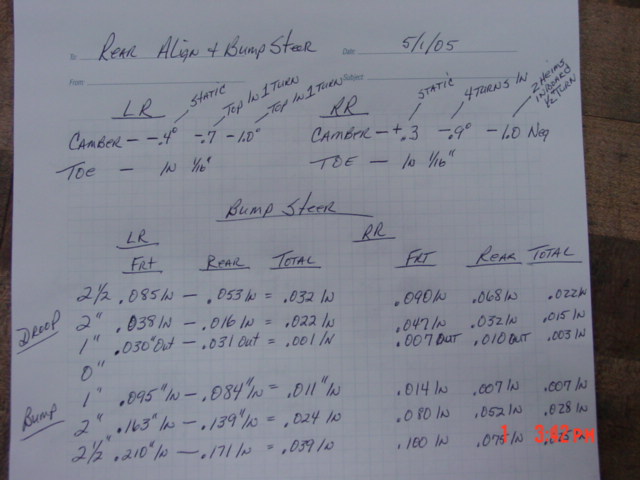 To Rear Align + Bump Steer Date 5/1/05
From Subject
Static Top In 1 Turn Top In 1 Turn Static 4 Turns In 2 Heims Inboard 1/2 Turn
LR RR
Camber — -.4° -.7 -1.0° Camber — +.3 -.9° -1.0 Neg
Toe — In 1/16" Toe — In 1/16"
Bump Steer
LR RR
Frt Rear Total Frt Rear Total
Droop
2 1/2 .085 In — .053 In = .032 In .090 In .068 In .022 In
2" .038 In — .016 In = .022 In .047 In .032 In .015 In
1" .030" Out — .031 Out = .001 In .007 Out .010 Out .003 In
0"
Bump
1" .095" In — .084" In = .011" In .014 In .007 In .007 In
2" .163" In — .139" In = .024 In .080 In .052 In .028 In
2 1/2" .210" In — .171 In = .039 In .100 In